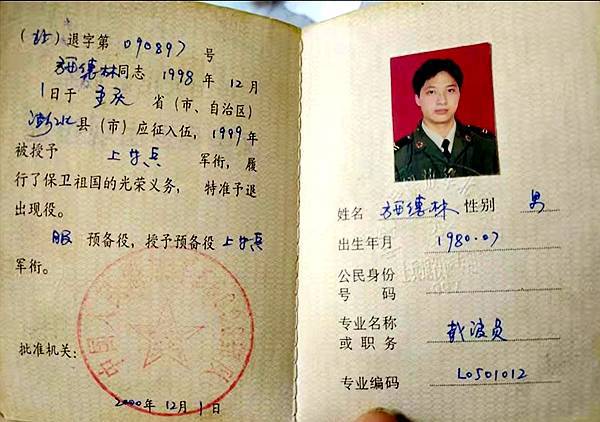 (北) 退字第 090897 号
施德林同志 1998 年 12 月
1 日于 重庆 省 (市、自治区)
彭水县 (市) 应征入伍, 1999 年
被授予 上等兵 军衔, 履
行了保卫祖国的光荣义务, 特准予退
出现役。
服 预备役, 授予预备役 上等兵
军衔。
批准机关:
2000 年 12 月 1 日
姓名 施德林 性别 男
出生年月 1980.07
公民身份
号 码
专业名称 载波员
或 职 务
专业编码 L0501012